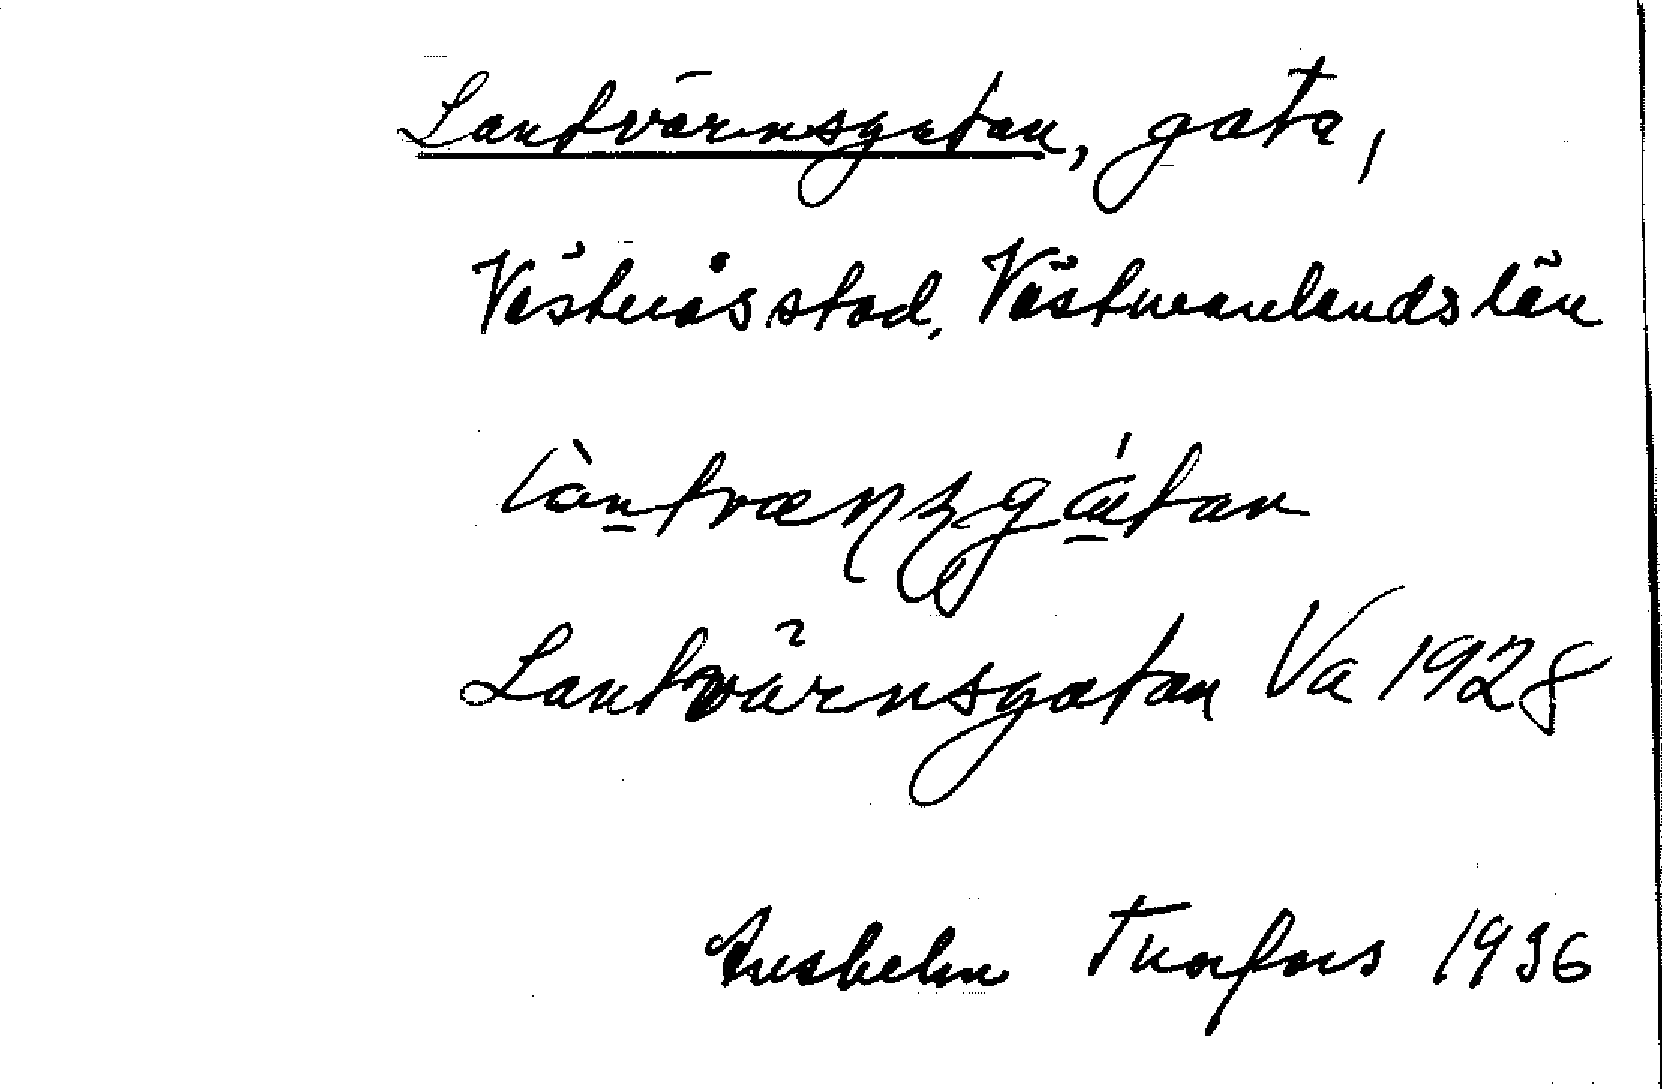 Lantvärnsgatan, gata,
Västerås stad, Västmanlands län
làntvæɳʂgátan
Lantvärnsgatan Va 1928
Turfors 1936